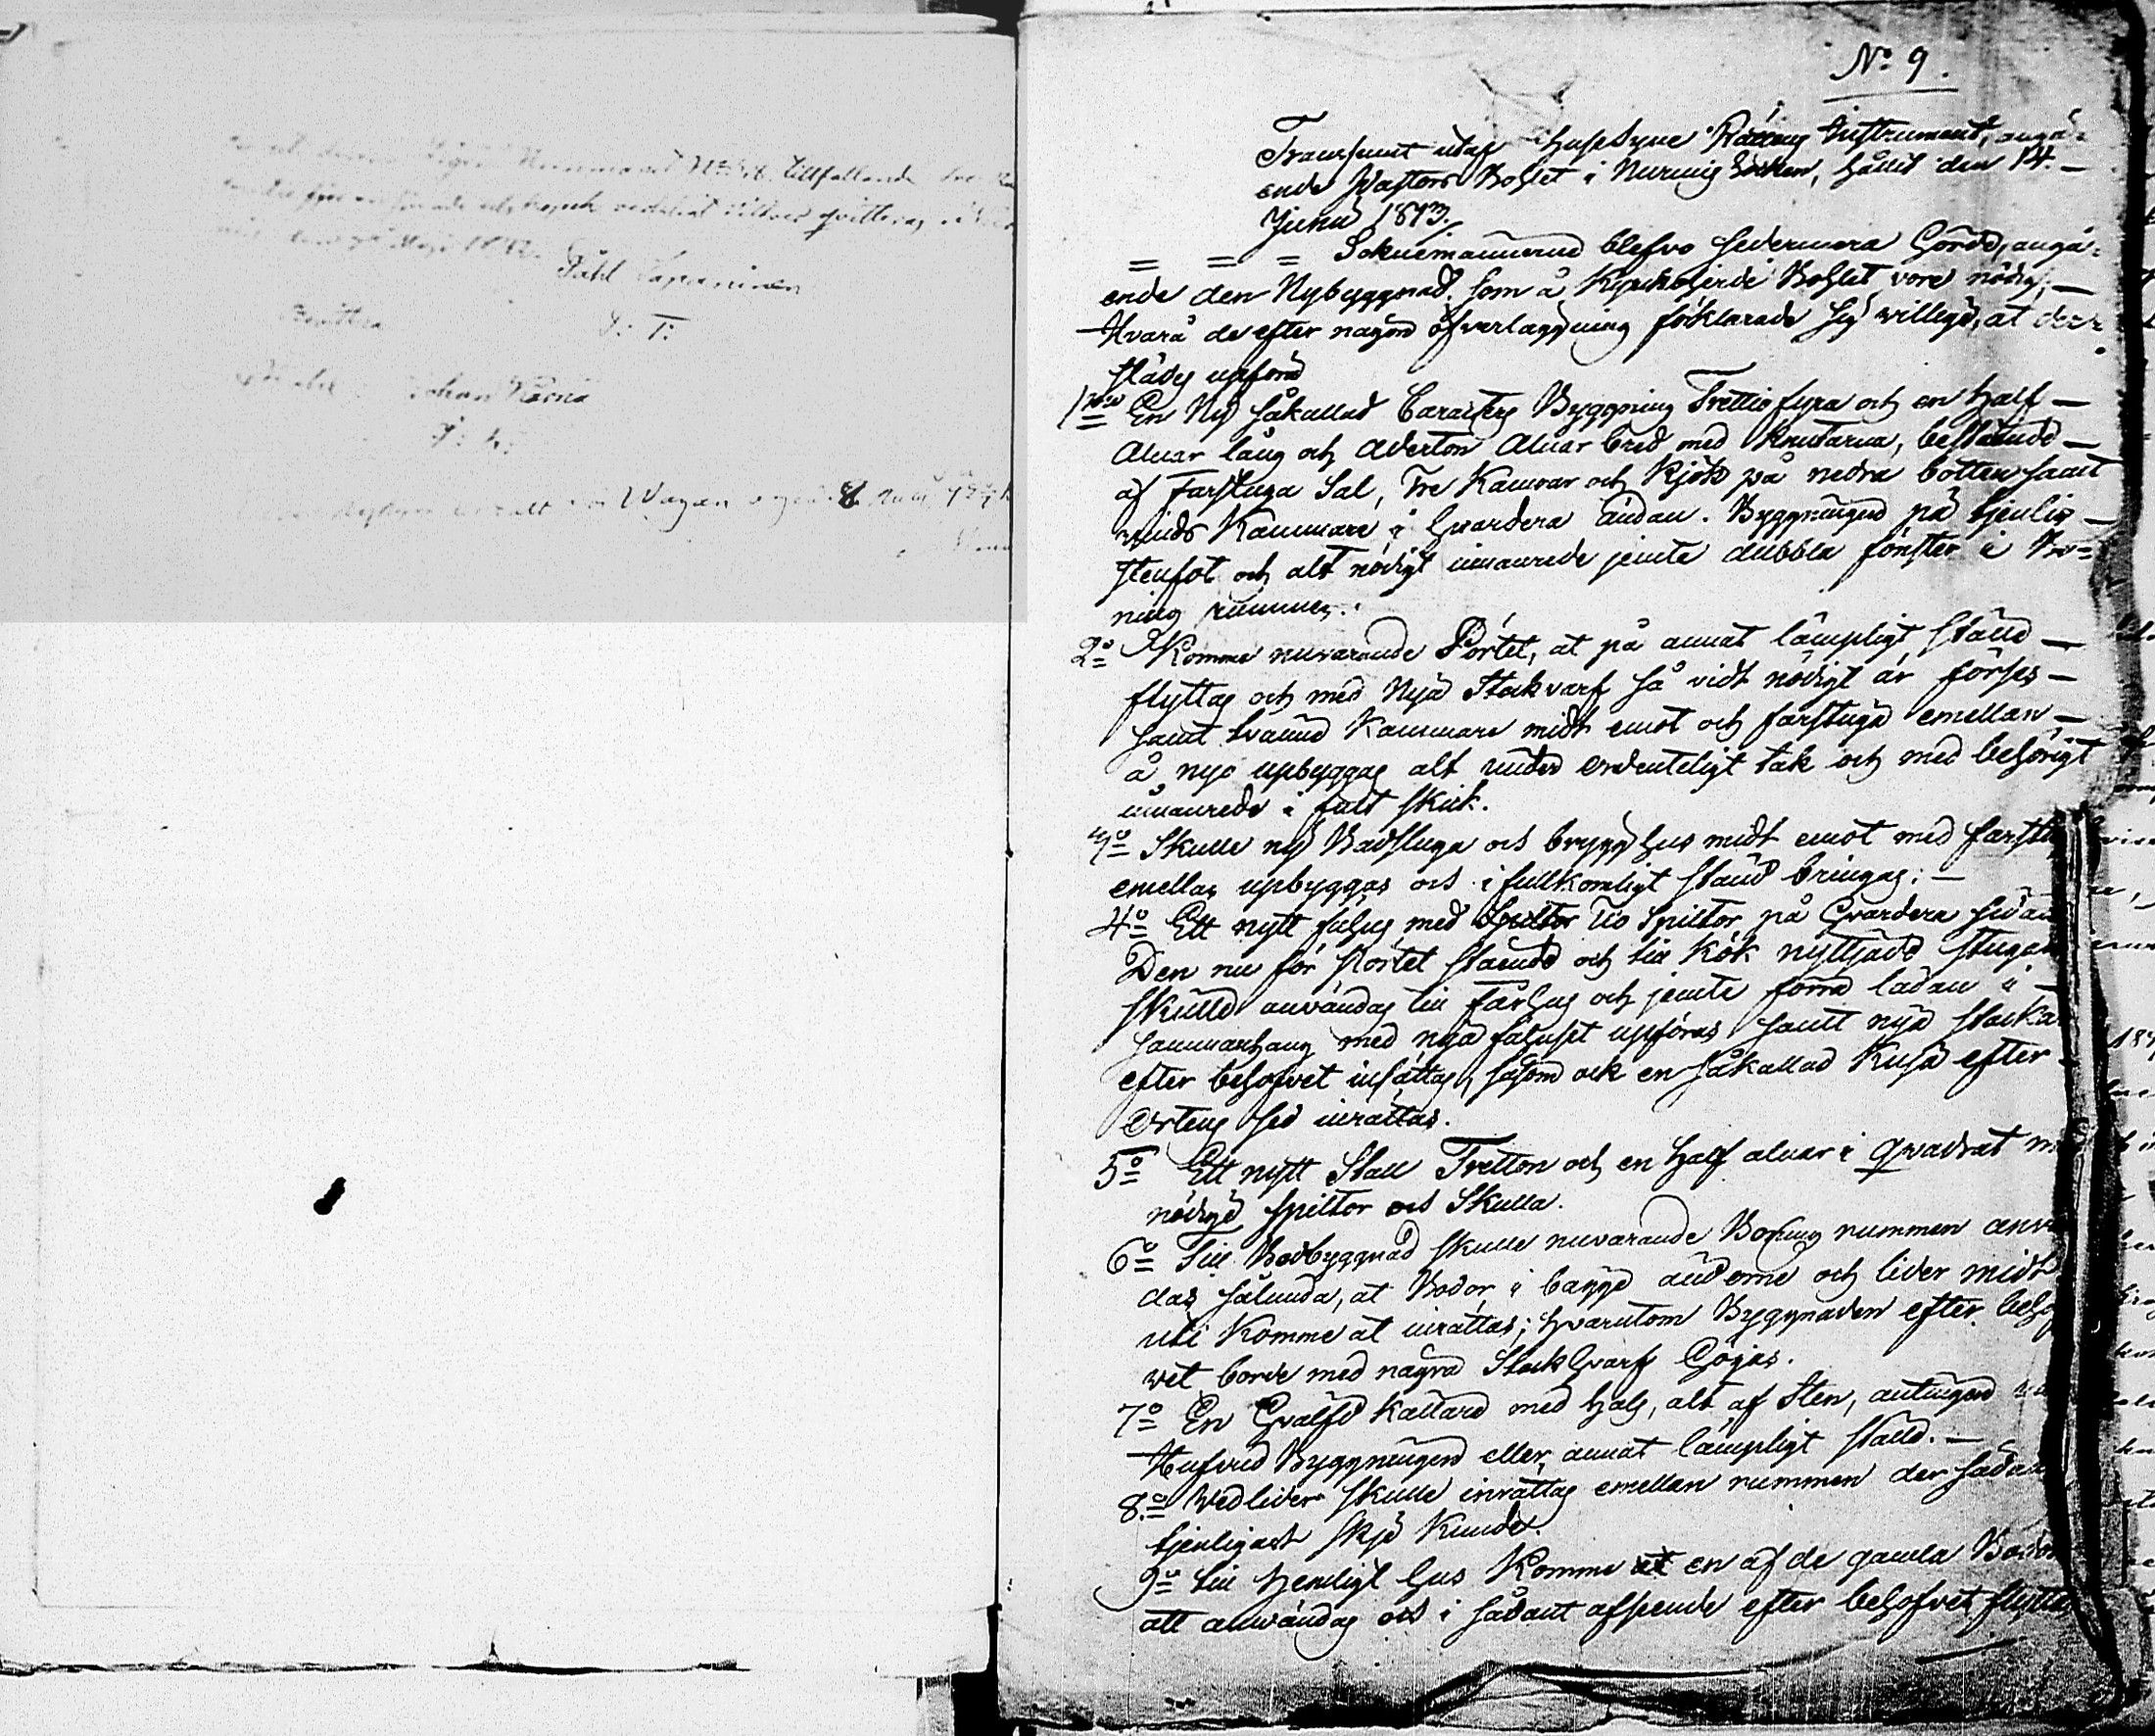 Nummaret No 48. tillfallande
qvitteras
den 7 Maji 1842.
Påhl Laparinen
S: T:
Johan
Wägan
No 9.
Transumt utaf Husesyne Rättens Instrument, angå-
ende Pastors Bohlet i Nurmis Socken, hållit den 14.
Junii 1813.
= = = Soknemännerne blefvo sedermera hörde, angå-
ende den Nybyggnad, som å Kyrkoherde Bohlet vore nödig,
Hvarå de efter någon öfverläggning förklarade sig willige, at der-
städes upföra
1mo En Ny såkallad Caracters Byggning Trettiofyra och en half
Alnar lång och Aderton Alnar bred med knutarna, bestående
af Farstuga Sal, Tre Kamrar och Kjök på nedra botten samt
vinds Kammare i hvardera ändan. Byggningen på tjenlig
stenfot och alt nödigt innanrede jemte dubbla fönster i Bo-
nings rummen.
2o Komme nuvarande Pörtet, at på annat lämpligt ställe
flyttas och med Nya Stockvarf så vidt nödigt är förses
samt tvänne Kammare midt emot och farstuga emellan
å nyo upbyggas alt under ordenteligt tak och med behörigt
innanrede i fult skick.
3o Skulle ny Badstuga och brygghus midt emot med farstu
emellan upbyggas och i fullkomligt stånd bringas;
4o Ett nytt fähus med Spiltor Tio Spiltor på hvardera sidan
Den nu för Pörtet stående och till Kök nyttjade stugan
skulle användas till Fårhus och jemte förra ladan i
sammanhang med nya fähuset upföras samt nya stockar
efter behofvet insättas, såsom ock en såkallad Kuja efter
Ortens sed inrättas.
5o Ett nytt Stall Tretton och en half alnar i quadrat m
nödige spiltor och Skulla.
6o Till Bodbyggnad skulle nuvarande Bonings rummen anvä
das sålunda, at Bodor i bägge ändorne och lider midt
uti Komme at inrättas; hvarutom Byggnaden efter beho
vet borde med några Stockhvarf höjas.
7o En hvälfd källare med hals, alt af Sten, antingen u
Hufvud Byggningen eller annat lämpligt ställe.
8o Vedlider skulle inrättas emellan rummen der sådan
tjenligast skje Kunde.
9o Till Hemligt hus Komme at en af de gamla Bodor
att användas och i sådant afseende efter behofvet flyttas